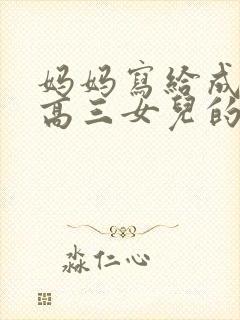 妈妈寫給成
高三女兒的
淼仁心